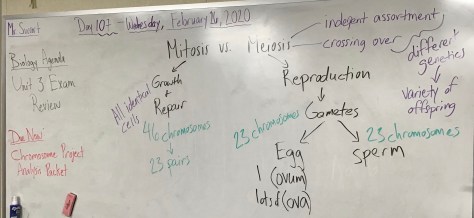 Day 107 - Wednesday, February 26, 2020
Biology Agenda
Unit 3 Exam
Review
Do Now:
Chromosome Project
Analysis Packet
Mitosis vs. Meiosis
indepent assortment
crossing over
different
genetics
variety of
offspring
Growth
+
Repair
All identical
cells
46 chromosomes
23 pairs
Reproduction
Gametes
23 chromosomes
23 chromosomes
Egg
1 (ovum)
lots of (ova)
sperm